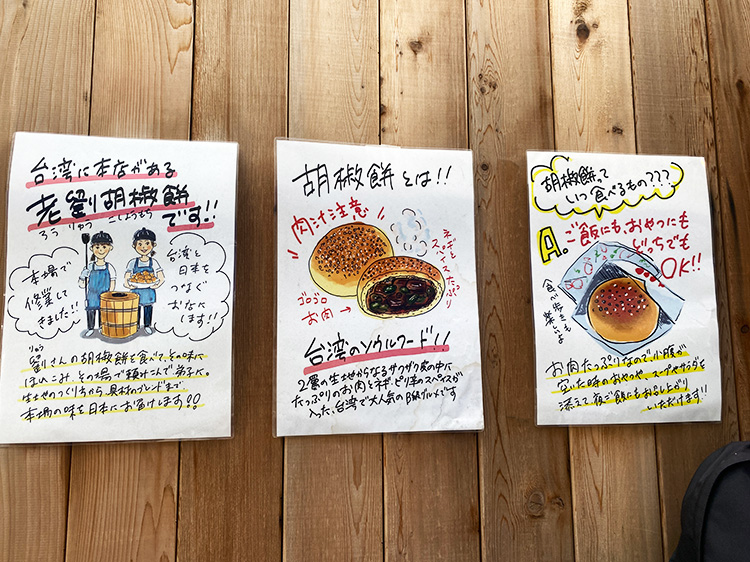 台湾に本店がある
老劉胡椒餅
ろう りゅう こしょうもち
です!!
本場で
修業して
きました!!
台湾と
日本を
つなぐ
お店に
します!!
りゅう
劉さんの胡椒餅を食べて、その味に
ほれこみ、その場で頼みこんで弟子に。
生地のつくり方から、具材のブレンドまで
本場の味を日本にお届けします!!
胡椒餅とは!!
肉汁注意
ネギと
スパイス
たっぷり
ゴロゴロ
お肉→
台湾のソウルフード!!
2層の生地からなるサクサク皮の中に
たっぷりのお肉とネギ、ピリ辛のスパイスが
入った、台湾で大人気のB級グルメです
胡椒餅って
いつ食べるもの???
A.ご飯にも、おやつにも
どっちでも
OK!!
食べ歩きも
楽しいよ
お肉たっぷりなので、小腹が
空いた時のおやつや、スープやサラダを
添えて夜ご飯にもお召し上がり
いただけます!!